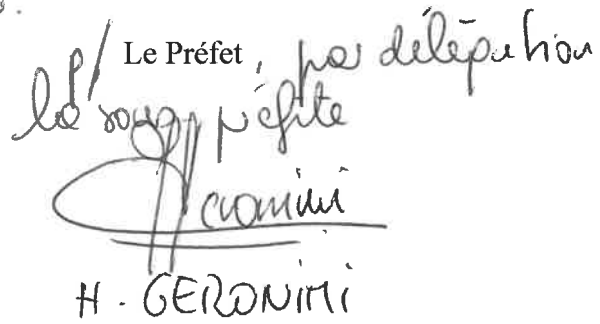 P/ Le Préfet, par délégation
la sous préfète
Geronimi
H. GERONIMI